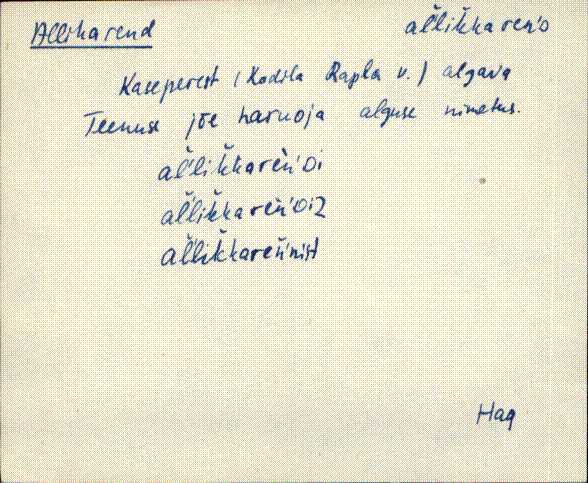 Allikarend	al̆lik̆karen̆'D
Kaseperest (Kodila Rapla v.) algava
Teenuse jõe haruoja alguse nimetus.
al̆'lik̆karen̆'Di
al̆'lik̆karen̆'DiZ
al̆'lik̆karen̆'nist
Hag